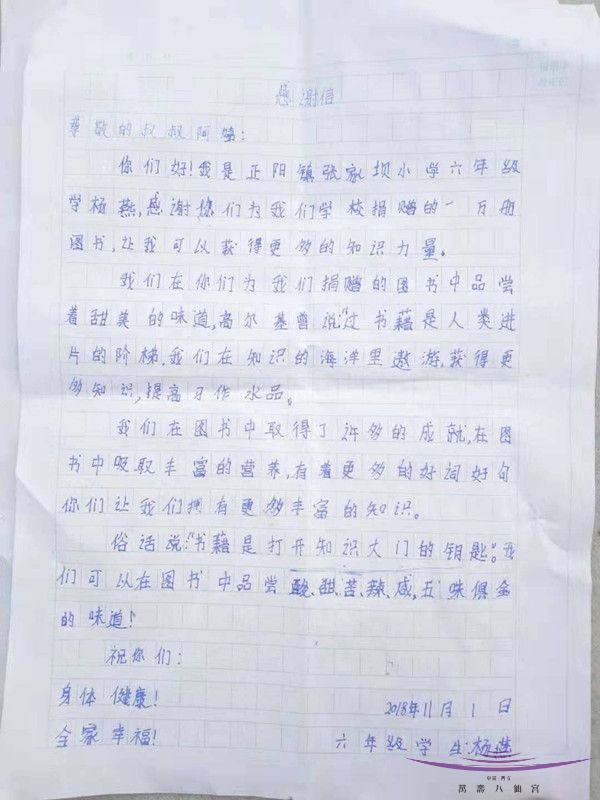 感谢信
尊敬的叔叔阿姨:
你们好!我是正阳镇张家坝小学六年级
学杨燕,感谢您们为我们学校捐赠的一万册
图书,让我可以获得更多的知识力量。
我们在你们为我们捐赠的图书中品尝
着甜美的味道,高尔基曾说:"过书籍是人类进
片的阶梯,我们在知识的海洋里遨游,获得更
多知识,提高习作水品。
我们在图书中取得了许多的成就,在图
书中吸取丰富的营养,有着更多的好词好句
你们让我们拥有更多丰富的知识。
俗话说:"书藉是打开知识大门的钥匙。"我
们可以在图书中品尝酸、甜、苦、辣、咸,五味俱全
的味道!
祝你们:
身体健康!
2018年11月1日
全家幸福!
六年级学生:杨燕
中国·西安
萬壽八仙宫